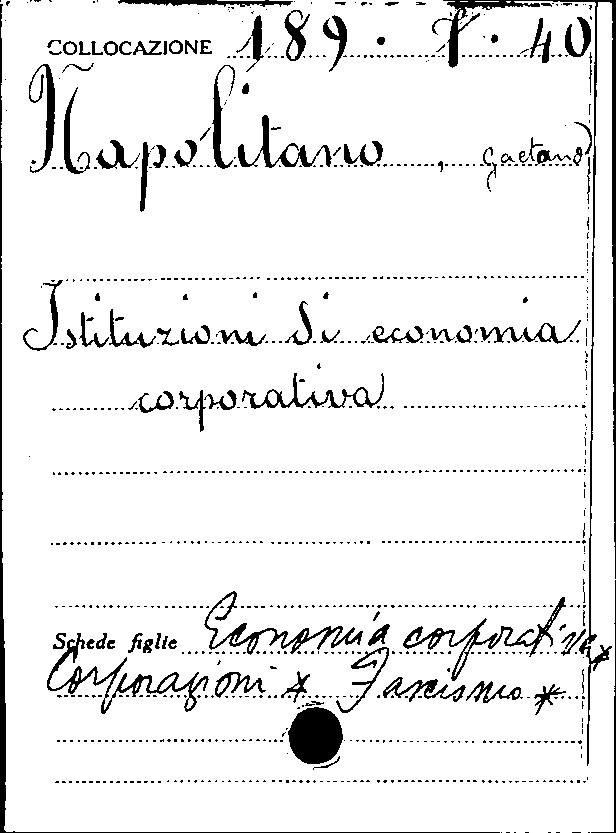 COLLOCAZIONE 189 · 7 · 40
Napolitano, Gaetano
Istituzioni di economia
corporativa
Schede figlie Economia corporativa*
Corporazioni * Fascismo *